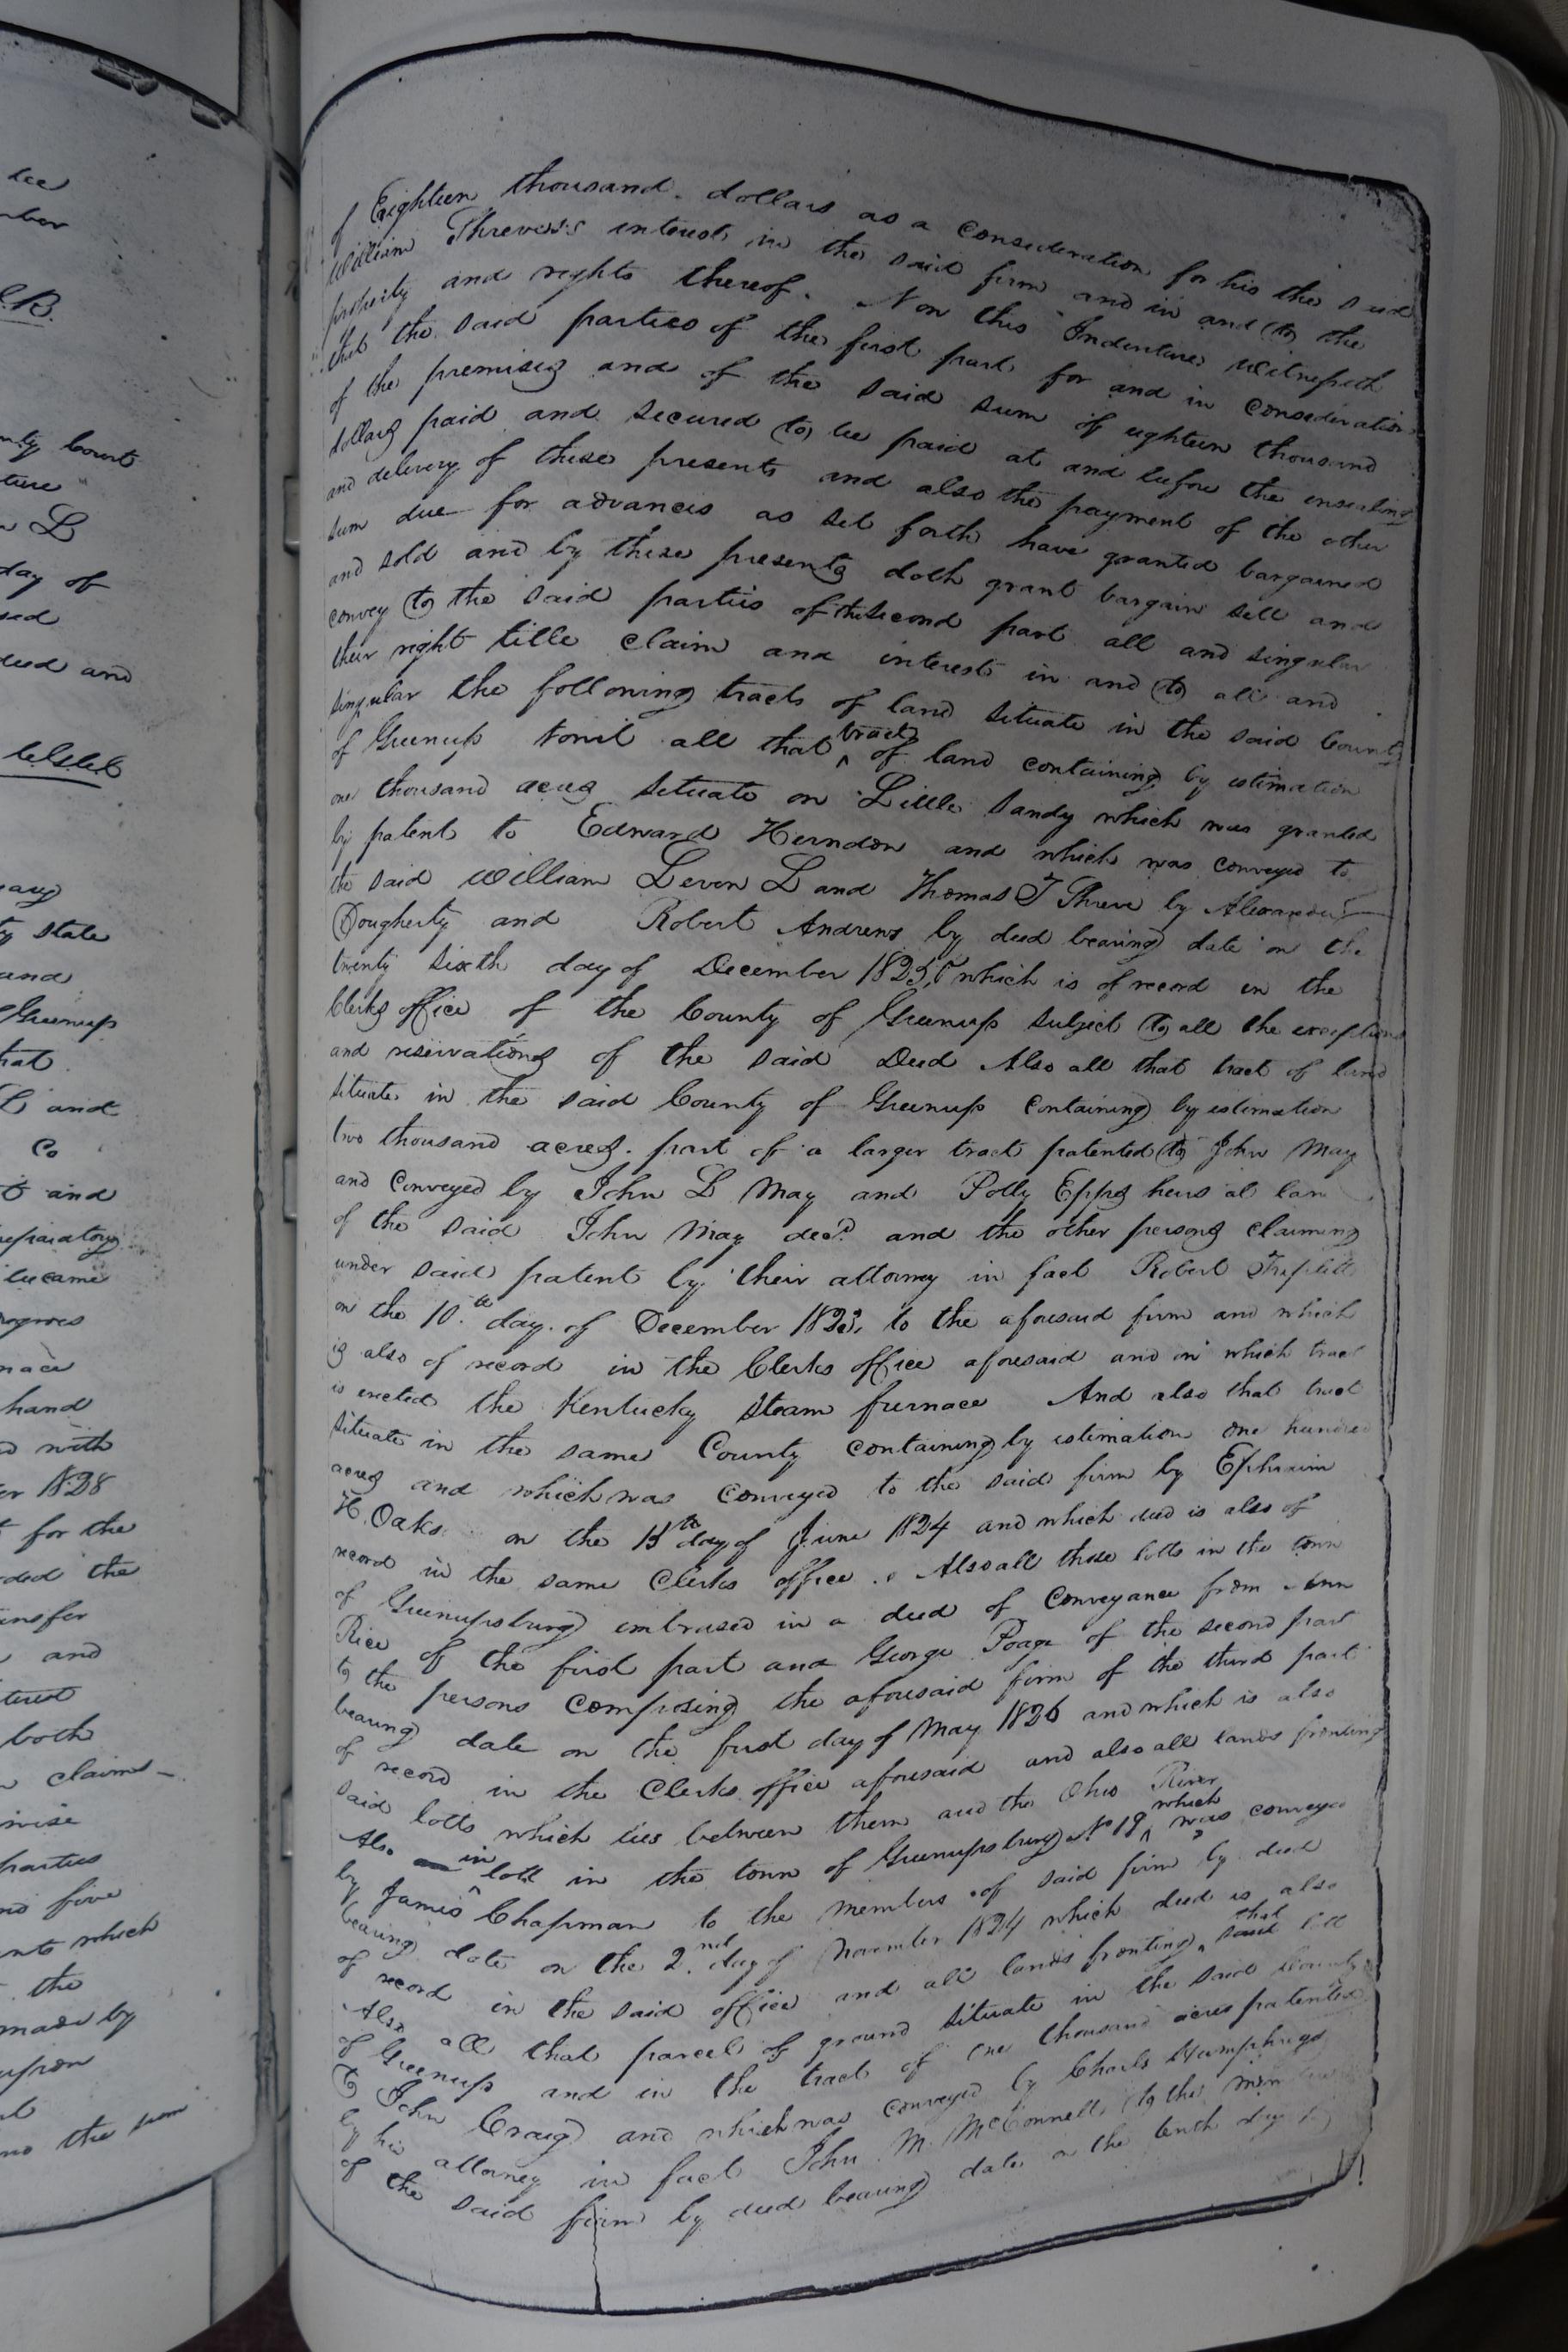 lee
nber
C.B.
nty Court
ture
n L
day of
sed
deed and
ty State
and
Greenup
that
L and
Co
and
reparatory
became
negroes
nace
hand
d with
er 1828
t for the
eded the
ansfer
and
terest
both
claims
mise
parties
nd five
ents which
the
made by
upon
of Eighteen thousand dollars as a consideration for his the said
William Threves's interest in the said firm and in and to the
property and rights thereof. Now this Indenture Witnesseth
that the said parties of the first part for and in consideration
of the premises and of the said sum of eighteen thousand
dollars paid and secured to be paid at and before the ensealing
and delivery of these presents and also the payment of the other
sum due for advances as set forth have granted bargained
and sold and by these presents doth grant bargain sell and
convey to the said parties of the second part all and singular
their right title claim and interest in and to all and
singular the following tracts of land situate in the said County
of Greenup towit all that tract of land containing by estimation
one thousand acres situate on Little Sandy which was granted
by patent to Edward Herndon and which was conveyed to
the said William Leven L and Thomas T Shreve by Alexander
Dougherty and Robert Andrews by deed bearing date on the
twenty sixth day of December which is of record in the
Clerks office of the County of Greenup subject to all the exceptions
and reservations of the said Deed Also all that tract of land
situate in the said County of Greenup containing by estimation
two thousand acres. part of a larger tract patented to John May
and conveyed by John L May and Polly Epps heirs at law
of the said John May decd. and the other persons claiming
under said patent by their attorney in fact Robert Triplett
on the 10.th day of December 1823, to the aforesaid firm and which
is also of record in the Clerks office aforesaid and on which tract
is erected the Kentucky Steam furnace And also that tract
situate in the same County containing by estimation one hundred
acres and which was conveyed to the said firm by Ephraim
H. Oaks on the day of June 1824 and which deed is also of
record in the same Clerks office. Also all those lotts in the town
of Greenupsburg embrased in a deed of conveyance from Ann
Rice of the first part and George Poage of the second part
to the persons composing the aforesaid firm of the third part
bearing date on the first day of May 1826 and which is also
of record in the Clerks office aforesaid and also all lands fronting
said lotts which lies between them and the Ohio River
Also in lott in the town of Greenupsburg No 19 which was conveyed
by James Chapman to the members of said firm by deed
bearing date on the 2.nd day of November 1824 which deed is also
of record in the said office and all lands fronting that said lott
Also all that parcel of ground situate in the said County
of Greenup and in the tract of one thousand acres patented
to John Craig and which was conveyed by Charls Humphreys
by his attorney in fact John M. McConnell to the members
of the said firm by deed bearing date on the tenth day of